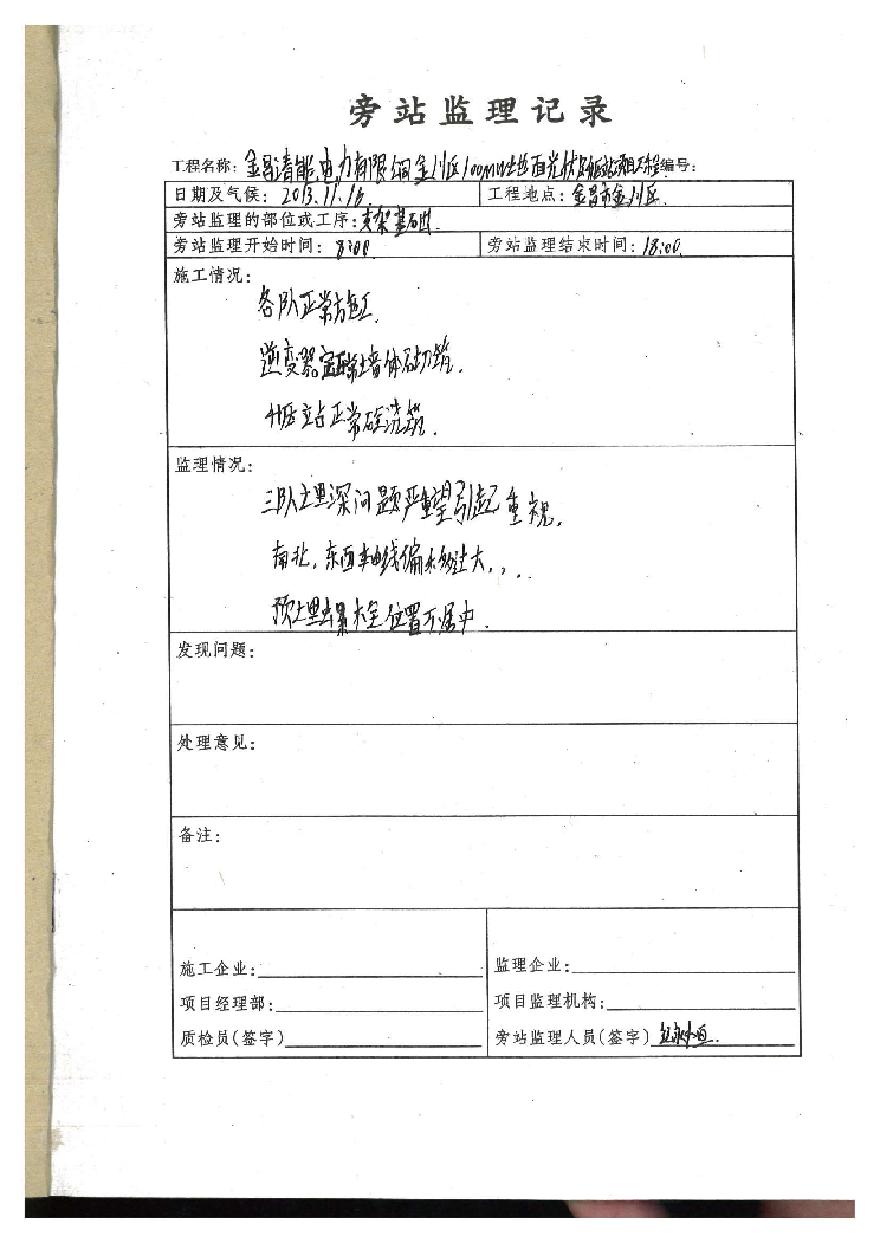 旁站监理记录
工程名称：金昌清能电力有限公司金川区100MW地面光伏 项目工程 编号：
日期及气候：2013.11.16.
工程地点：金昌市金川区.
旁站监理的部位或工序：支架基础.
旁站监理开始时间：8:00
旁站监理结束时间：18:00.
施工情况：
各队正常施工.
逆变器室正常墙体砌筑.
升压站正常砼浇筑.
监理情况：
三队 埋深问题严重望引起重视.
南北.东西轴线偏 过大..
位置不居中.
发现问题：
处理意见：
备注：
施工企业：
监理企业：
项目经理部：
项目监理机构：
质检员(签字)
旁站监理人员(签字)